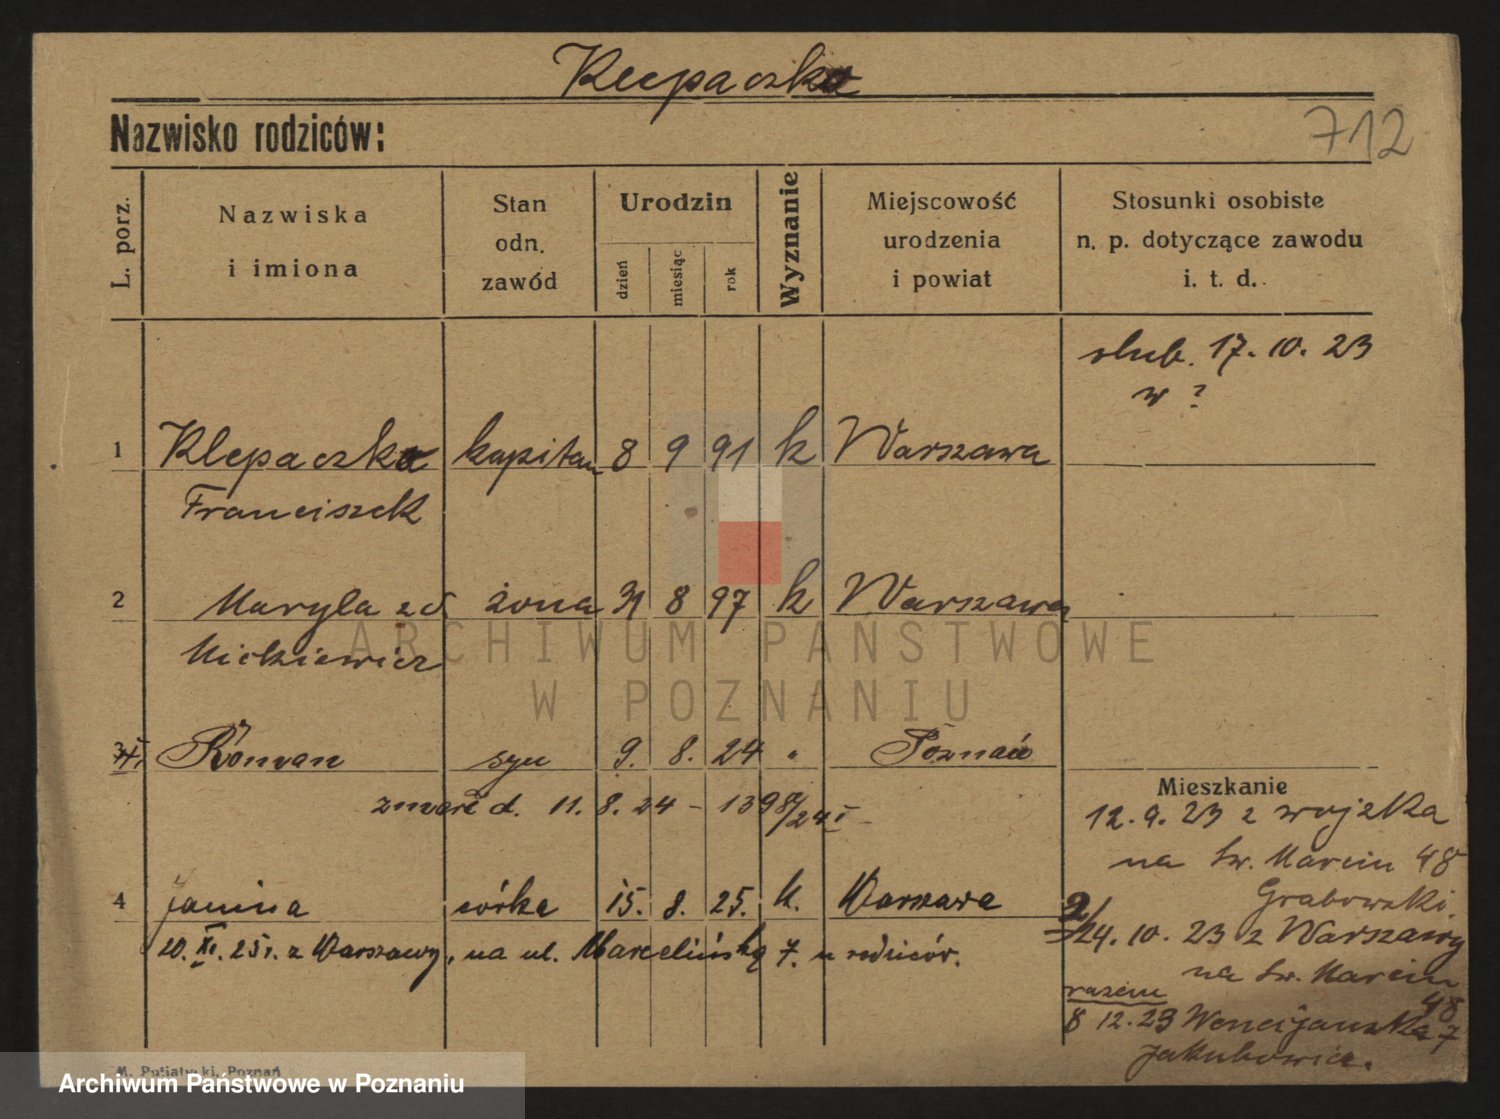 Klepaczko
Nazwisko rodziców:
712
L. porz.
Nazwiska
i imiona
Stan
odn.
zawód
Urodzin
dzień
miesiąc
rok
Wyznanie
Miejscowość
urodzenia
i powiat
Stosunki osobiste
n. p. dotyczące zawodu
i. t. d.
ślub. 17. 10. 23
w ?
1 Klepaczko kapitan 8 9 91 k Warszawa
Franciszek
2 Maryla z d. żona 31 8 97 k Warszawa
Mickiewicz
ARCHIWUM PAŃSTWOWE
W POZNANIU
3 Roman syn 9. 8. 24 " Poznań
zmarł d. 11. 8. 24 -
Mieszkanie
12. 9. 23 z wojska
na Św. Marcin 48
Grabowski.
4 Janina córka 15. 8. 25. k. Warszawa
20. XI. 25 r. z Warszawy, na ul. Marcelińską 7. u rodziców.
2/ 24. 10. 23 z Warszawy
na Św. Marcin
48
razem
8 12. 23 Wenecjańska 7
Jakubowicz.
M. Putiatycki, Poznań
Archiwum Państwowe w Poznaniu